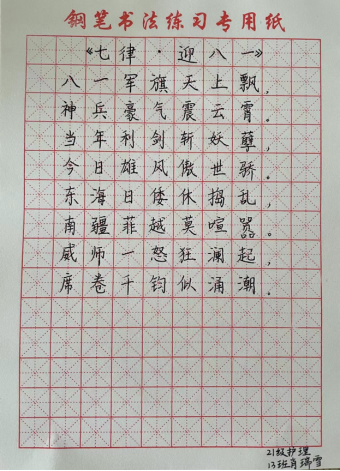 钢笔书法练习专用纸
《七律·迎八一》
八一军旗天上飘，
神兵豪气震云霄。
当年利剑斩妖孽，
今日雄风傲世骄。
东海日倭休捣乱，
南疆菲越莫喧嚣。
威师一怒狂澜起，
席卷千钧似涌潮。
21级护理
13班肖瑞雪